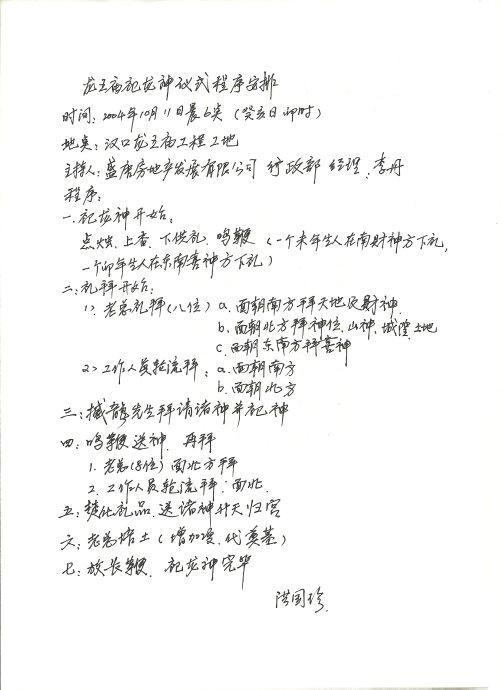 龙王庙祀龙神仪式程序安排
时间：2004年10月11日晨6点（癸亥日卯时）
地点：汉口龙王庙工程工地
主持人：蓝唐房地产发展有限公司 行政部 经理：李丹
程序：
一.祀龙神开始：
点烛.上香.下供礼.鸣鞭（一个未年生人在南财神方下礼，
一个卯年生人在东南喜神方下礼）
二：礼拜开始：
1）.老总礼拜（八位）a.面朝南方拜天地及财神.
b.面朝北方拜神位.山神.城隍.土地
c.面朝东南方拜喜神
2）工作人员轮流拜：a.面朝南方
b.面朝北方
三：撼龍先生拜请诸神并祀神
四：鸣鞭送神.再拜
1.老总（8位）面北方拜
2.工作人员轮流拜.面北.
五：焚化礼品.送诸神升天归宫
六：老总培土（增加灵.代奠基）
七：放长鞭.祀龙神完毕
洪国珍.